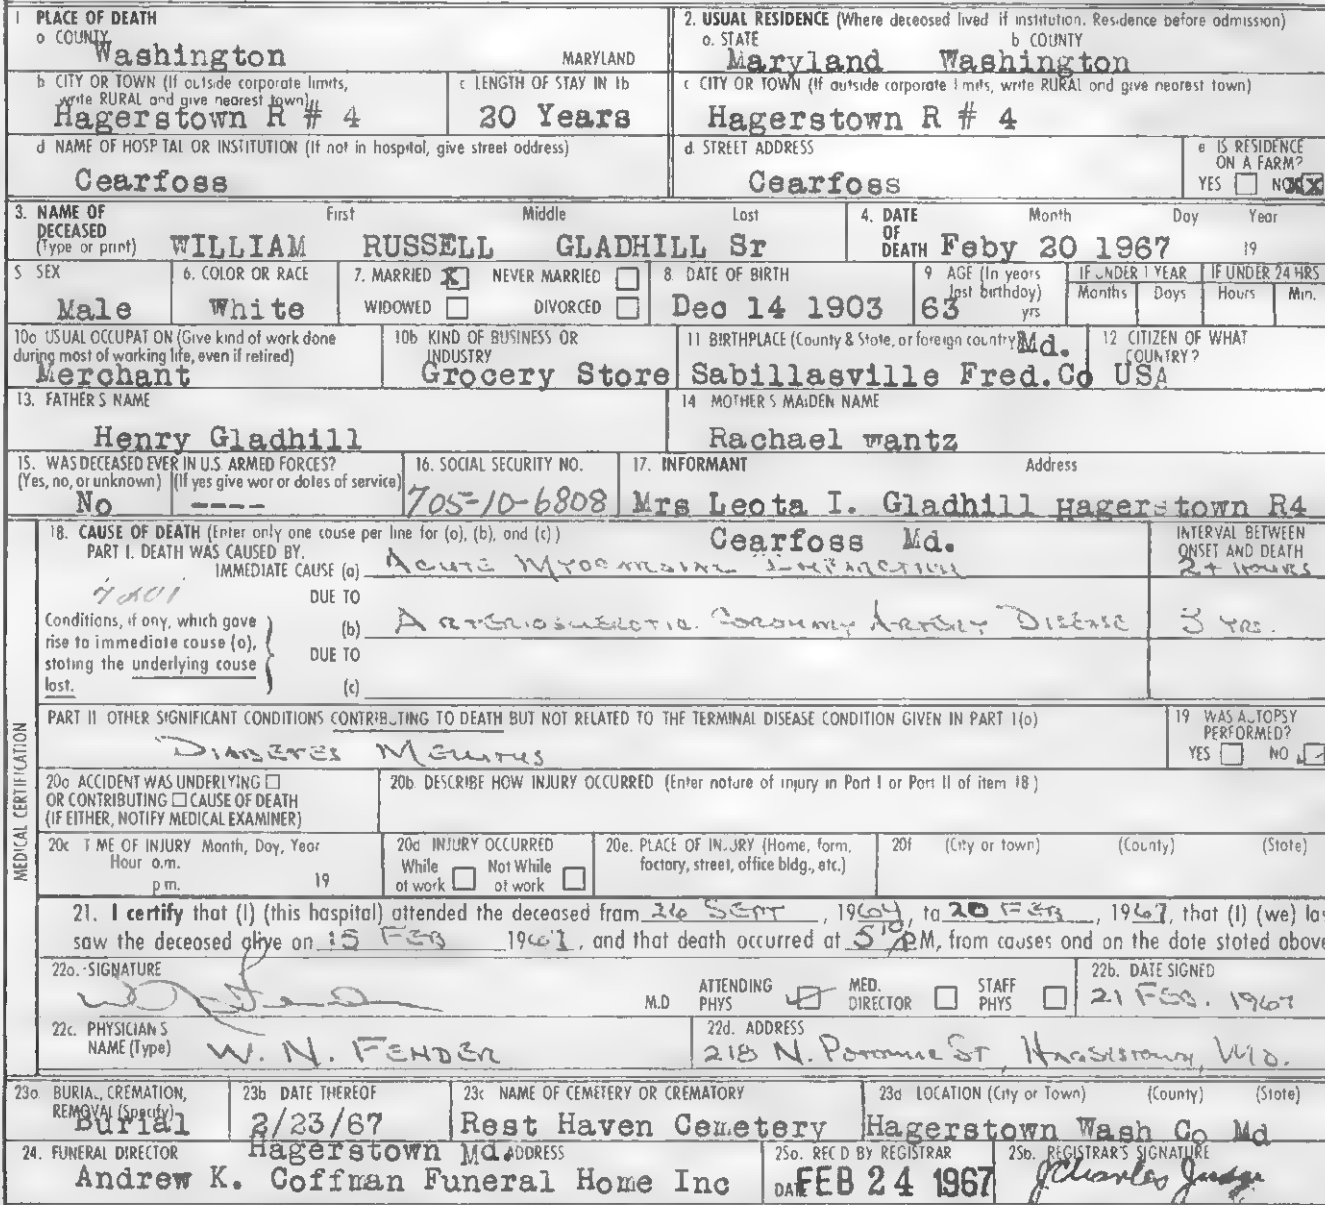 1 PLACE OF DEATH
a COUNTY
Washington
MARYLAND
2. USUAL RESIDENCE (Where deceased lived if institution. Residence before admission)
a. STATE b COUNTY
Maryland Washington
b CITY OR TOWN (If outside corporate limits, write RURAL and give nearest town)
Hagerstown R # 4
c LENGTH OF STAY IN 1b
20 Years
c CITY OR TOWN (If outside corporate limits, write RURAL and give nearest town)
Hagerstown R # 4
d NAME OF HOSPITAL OR INSTITUTION (If not in hospital, give street address)
Cearfoss
d. STREET ADDRESS
Cearfoss
e IS RESIDENCE ON A FARM?
YES NO X
3. NAME OF DECEASED (Type or print)
First Middle Last
WILLIAM RUSSELL GLADHILL Sr
4. DATE OF DEATH
Month Day Year
Feby 20 1967 19
5 SEX
Male
6. COLOR OR RACE
White
7. MARRIED X NEVER MARRIED
WIDOWED DIVORCED
8. DATE OF BIRTH
Dec 14 1903
9 AGE (In years last birthday)
63 yrs
IF UNDER 1 YEAR
Months Days
IF UNDER 24 HRS
Hours Min.
10a USUAL OCCUPATION (Give kind of work done during most of working life, even if retired)
Merchant
10b KIND OF BUSINESS OR INDUSTRY
Grocery Store
11 BIRTHPLACE (County & State, or foreign country)
Md.
Sabillasville Fred.Co
12 CITIZEN OF WHAT COUNTRY?
USA
13. FATHER'S NAME
Henry Gladhill
14 MOTHER'S MAIDEN NAME
Rachael wantz
15. WAS DECEASED EVER IN U.S. ARMED FORCES?
(Yes, no, or unknown) (If yes give war or dates of service)
No ----
16. SOCIAL SECURITY NO.
705-10-6808
17. INFORMANT Address
Mrs Leota I. Gladhill Hagerstown R4
Cearfoss Md.
18. CAUSE OF DEATH (Enter only one cause per line for (a), (b), and (c))
PART I. DEATH WAS CAUSED BY.
IMMEDIATE CAUSE (a) Acute Myocardial Infarction
INTERVAL BETWEEN ONSET AND DEATH
2+ hours
4201
DUE TO
Conditions, if any, which gave rise to immediate cause (a), stating the underlying cause last.
(b) Arteriosclerotic Coronary Artery Disease 3 yrs.
DUE TO
(c)
PART II OTHER SIGNIFICANT CONDITIONS CONTRIBUTING TO DEATH BUT NOT RELATED TO THE TERMINAL DISEASE CONDITION GIVEN IN PART 1(a)
Diabetes Mellitus
19 WAS AUTOPSY PERFORMED?
YES NO
MEDICAL CERTIFICATION
20a ACCIDENT WAS UNDERLYING
OR CONTRIBUTING CAUSE OF DEATH
(IF EITHER, NOTIFY MEDICAL EXAMINER)
20b. DESCRIBE HOW INJURY OCCURRED (Enter nature of injury in Part I or Part II of item 18)
20c TIME OF INJURY Month, Day, Year
Hour a.m.
p m. 19
20d INJURY OCCURRED
While at work Not While at work
20e. PLACE OF INJURY (Home, farm, factory, street, office bldg., etc.)
20f (City or town) (County) (State)
21. I certify that (I) (this hospital) attended the deceased from 26 Sept, 1964, to 20 Feb, 1967, that (I) (we) la
saw the deceased alive on 15 Feb 1967, and that death occurred at 5 10 PM, from causes and on the date stated above
22a. SIGNATURE
M.D
ATTENDING PHYS
MED. DIRECTOR
STAFF PHYS
22b. DATE SIGNED
21 Feb. 1967
22c. PHYSICIAN'S NAME (Type)
W. N. Fender
22d. ADDRESS
218 N. Potomac St, Hagerstown, Md.
23a. BURIAL, CREMATION, REMOVAL (Specify)
Burial
23b DATE THEREOF
2/23/67
23c NAME OF CEMETERY OR CREMATORY
Rest Haven Cemetery
23d LOCATION (City or Town) (County) (State)
Hagerstown Wash Co Md
24. FUNERAL DIRECTOR ADDRESS
Hagerstown Md.
Andrew K. Coffman Funeral Home Inc
25a. REC'D BY REGISTRAR
DATE FEB 24 1967
25b. REGISTRAR'S SIGNATURE
J Charles Judge